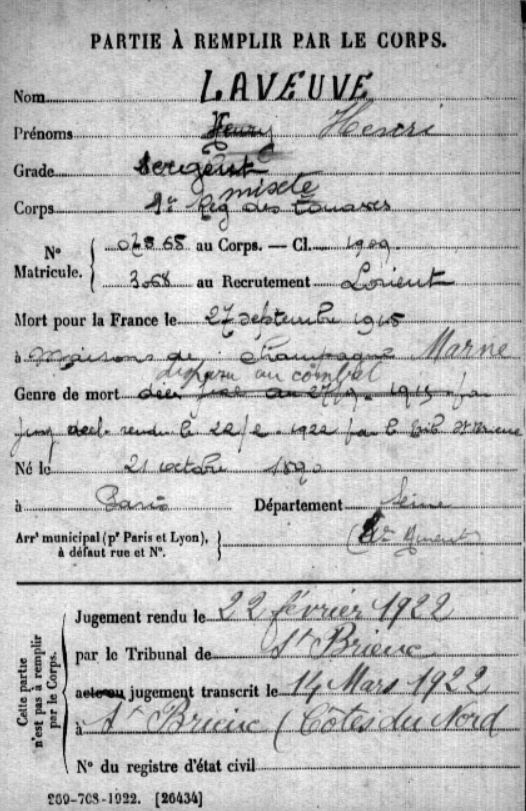 PARTIE À REMPLIR PAR LE CORPS.
Nom LAVEUVE
Prénoms Henri
Grade Sergent
mixte
Corps 1er Rég des Zouaves
Nº Matricule. au Corps. — Cl. 1909.
au Recrutement Lorient
Mort pour la France le 27 septembre 1915
à Maisons de Champagne Marne
disparu au combat
Genre de mort 1915
jug. décl. rendu le 22/2. 1922 par le Trib. St Brieuc
Né le 21 octobre
à Paris Département Seine
Arrt municipal (pr Paris et Lyon), à défaut rue et Nº.
Cette partie n'est pas à remplir par le Corps.
Jugement rendu le 22 février 1922
par le Tribunal de St Brieuc
acte ou jugement transcrit le 14 Mars 1922
à St Brieuc (Côtes du Nord
Nº du registre d'état civil
269-708-1922. [26434]